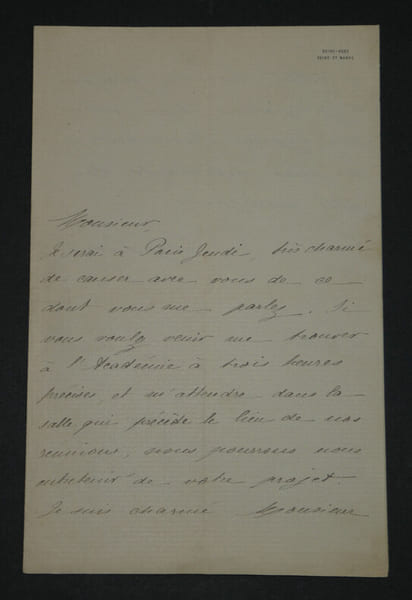 SEINE ET MARNE
Monsieur,
Je serai à Paris Jeudi, très charmé
de causer avec vous de ce
dont vous me parlez. Si
vous voulez venir me trouver
à l'Académie à trois heures
précises, et m'attendre dans la
salle qui précède le lieu de nos
reunions, nous pourrons nous
entretenir de votre projet.
Je suis charmé Monsieur